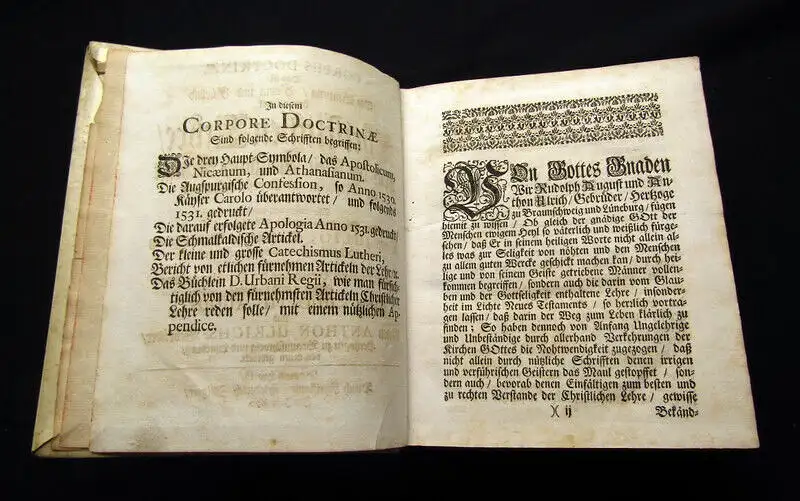 In diesem
CORPORE DOCTRINÆ
Sind folgende Schrifften begriffen:
DJe drey Haupt-Symbola/ das Apostolicum,
Nicænum, und Athanasianum.
Die Augspurgische Confession, so Anno 1530.
Käyser Carolo überantwortet/ und folgends
1531. gedruckt/
Die darauf erfolgete Apologia Anno 1531. gedruckt/
Die Schmalkaldische Artickel.
Der kleine und grosse Catechismus Lutheri,
Bericht von etlichen fürnehmen Artickeln der Lehr/ &c.
Das Büchlein D. Urbani Regii, wie man fürsich-
tiglich von den fürnehmsten Artickeln Christlicher
Lehre reden solle/ mit einem nützlichen Ap-
pendice.
VOn Gottes Gnaden
Wir Rudolph August und An-
thon Ulrich/ Gebrüder/ Hertzoge
zu Braunschweig und Lüneburg/ fügen
hiemit zu wissen/ Ob gleich der gnädige GOtt der
Menschen ewigem Heyl so väterlich und weißlich fürge-
sehen/ daß Er in seinem heiligen Worte nicht allein al-
les was zur Seligkeit von nöhten und den Menschen
zu allem guten Wercke geschickt machen kan/ durch hei-
lige und von seinem Geiste getriebene Männer vollen-
kommen begreiffen/ sondern auch die darin vom Glau-
ben und der Gottseligkeit enthaltene Lehre/ insonder-
heit im Lichte Neues Testaments/ so herrlich vortra-
gen lassen/ daß darin der Weg zum Leben klärlich zu
finden; So haben dennoch von Anfang Ungelehrige
und Unbeständige durch allerhand Verkehrungen der
Kirchen GOttes die Nohtwendigkeit zugezogen/ daß
nicht allein durch nützliche Schrifften denen irrigen
und verführischen Geistern das Maul gestopffet/ son-
dern auch/ bevorab denen Einfältigen zum besten und
zu rechten Verstande der Christlichen Lehre/ gewisse
)( ij Bekänd-